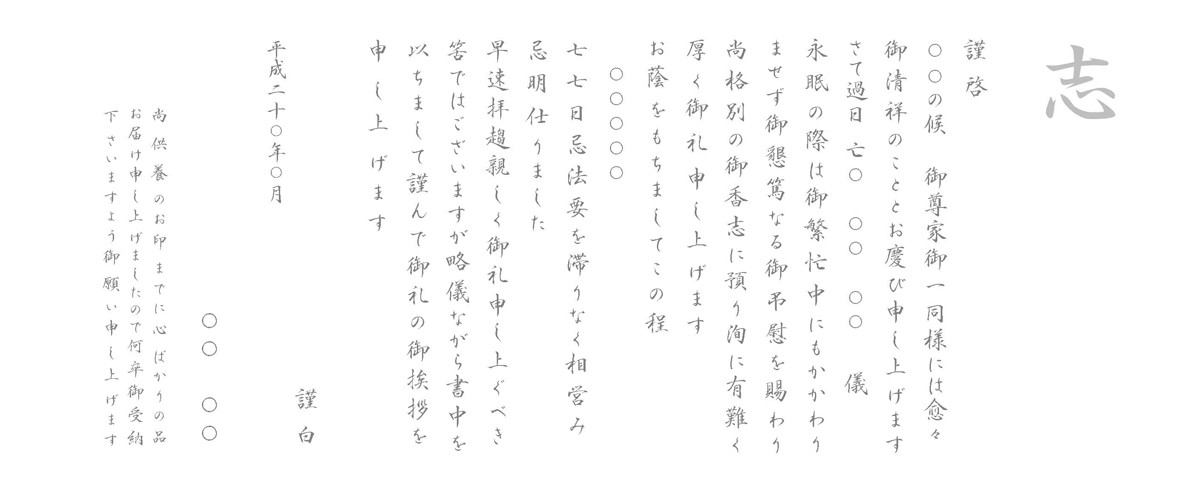 志
謹啓
○○の候　御尊家御一同様には愈々
御清祥のこととお慶び申し上げます
さて過日　亡○　○○　○○　儀
永眠の際は御繁忙中にもかかわり
ませず御懇篤なる御弔慰を賜わり
尚格別の御香志に預り洵に有難く
厚く御礼申し上げます
お蔭をもちましてこの程
○○○○○
七七日忌法要を滞りなく相営み
忌明仕りました
早速拝趨親しく御礼申し上ぐべき
筈ではございますが略儀ながら書中を
以ちまして謹んで御礼の御挨拶を
申し上げます
謹白
平成二十○年○月
○○　○○
尚供養のお印までに心ばかりの品
お届け申し上げましたので何卒御受納
下さいますよう御願い申し上げます